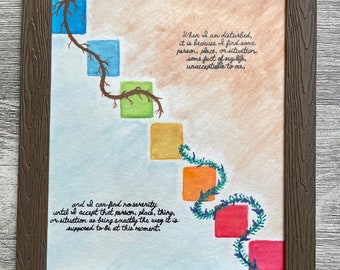 When I am disturbed,
it is because I find some
person, place, or situation
some fact of my life,
unacceptable to me,
and I can find no serenity
until I accept that person, place, thing,
or situation as being exactly the way it is
supposed to be at this moment.